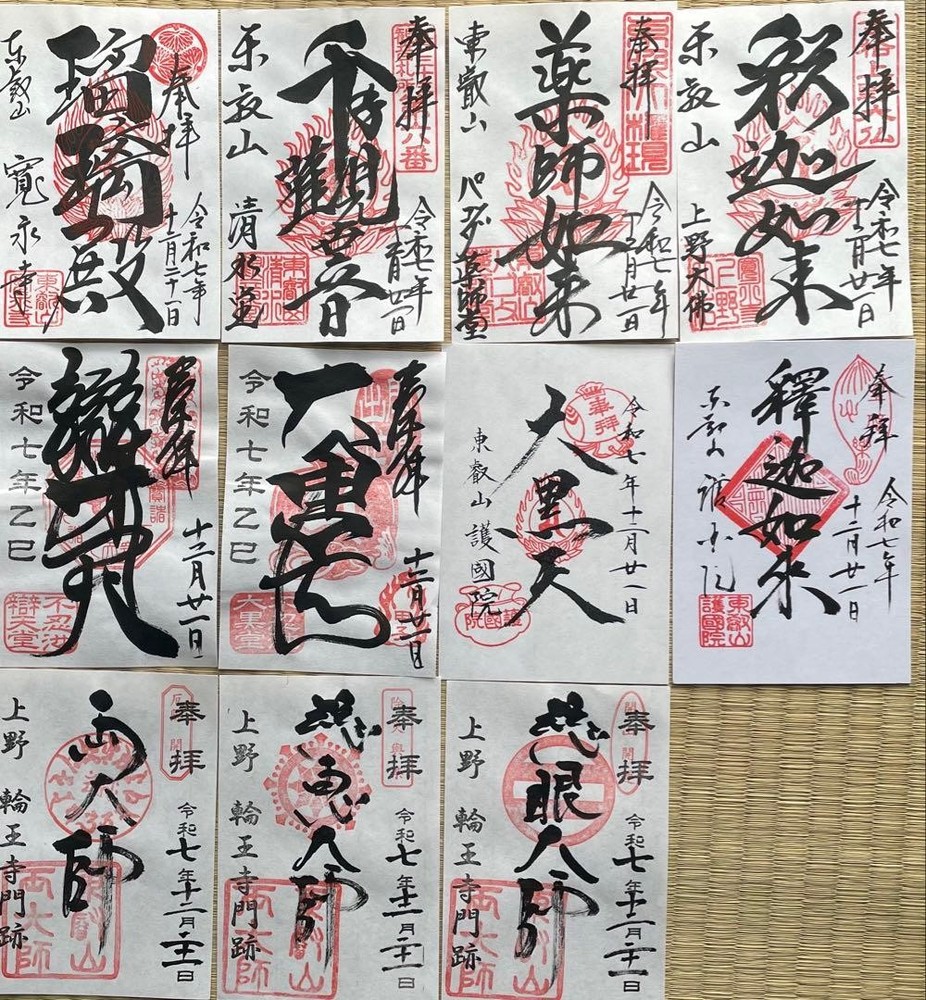 奉拝
令和七年
十二月二十一日
瑠璃殿
東叡山
寛永寺
奉拝
令和七年
十二月廿一日
千手観世音
東叡山
清水堂
奉拝
令和七年
十二月廿一日
薬師如来
東叡山
パゴダ薬師堂
奉拝
令和七年
十二月廿一日
釈迦如来
東叡山
上野大佛
奉拝
十二月廿一日
辯才天
令和七年乙巳
不忍池
辯天堂
奉拝
十二月廿一日
大黒天
令和七年乙巳
大黒堂
奉拝
令和七年十二月廿一日
大黒天
東叡山護國院
護國院
奉拝
令和七年
十二月廿一日
釋迦如来
東叡山
護國院
奉拝
令和七年十二月二十一日
両大師
上野 輪王寺門跡
東叡山
両大師
奉拝
令和七年十二月二十一日
慈恵大師
上野 輪王寺門跡
東叡山
両大師
奉拝
令和七年十二月二十一日
慈眼大師
上野 輪王寺門跡
東叡山
両大師